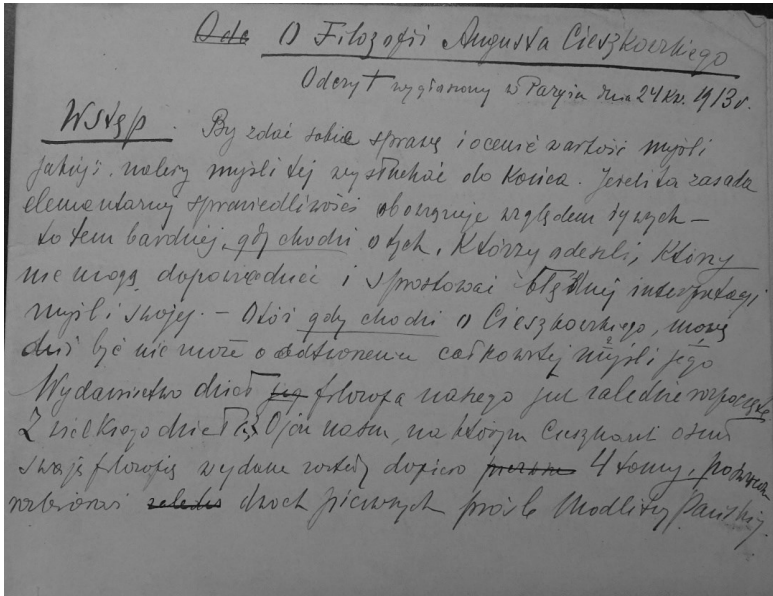 Ode O Filozofii Augusta Cieszkowskiego
Odczyt wygłaszany w Paryżu dnia 24 kw. 1913 r.
Wstęp. By zdać sobie sprawę i ocenić wartość myśli
jakiejś, należy myśli tej wysłuchać do końca. Jeżeli ta zasada
elementarnej sprawiedliwości obowiązuje względem żywych –
to tem bardziej, gdy chodzi o tych, którzy odeszli, którzy
nie mogą dopowiedzieć i sprostować błędnej interpretacji
myśli swojej. – Otóż gdy chodzi o Cieszkowskiego, mowy
dziś być nie może o odtworzeniu całkowitej myśli jego
Wydawnictwo dzieł jego filozofa naszego jest zaledwie rozpoczęte
Z wielkiego dzieła Ojcze nasz, na którym Cieszkowski osnuł
swoją filozofię wydane zostały dopiero pierwsze 4 tomy,
zaledwie dwóch pierwszych próśb Modlitwy Pańskiej.